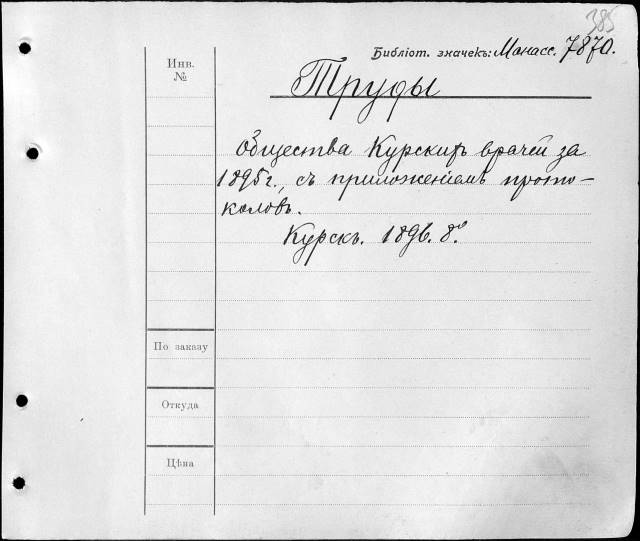 385
Библіот. значекъ: Манасс. 7870.
Инв.
№
Труды
Общества Курскихъ врачей за
1895 г., съ приложеніемъ прото-
коловъ.
Курскъ. 1896. 8º.
По заказу
Откуда
Цѣна